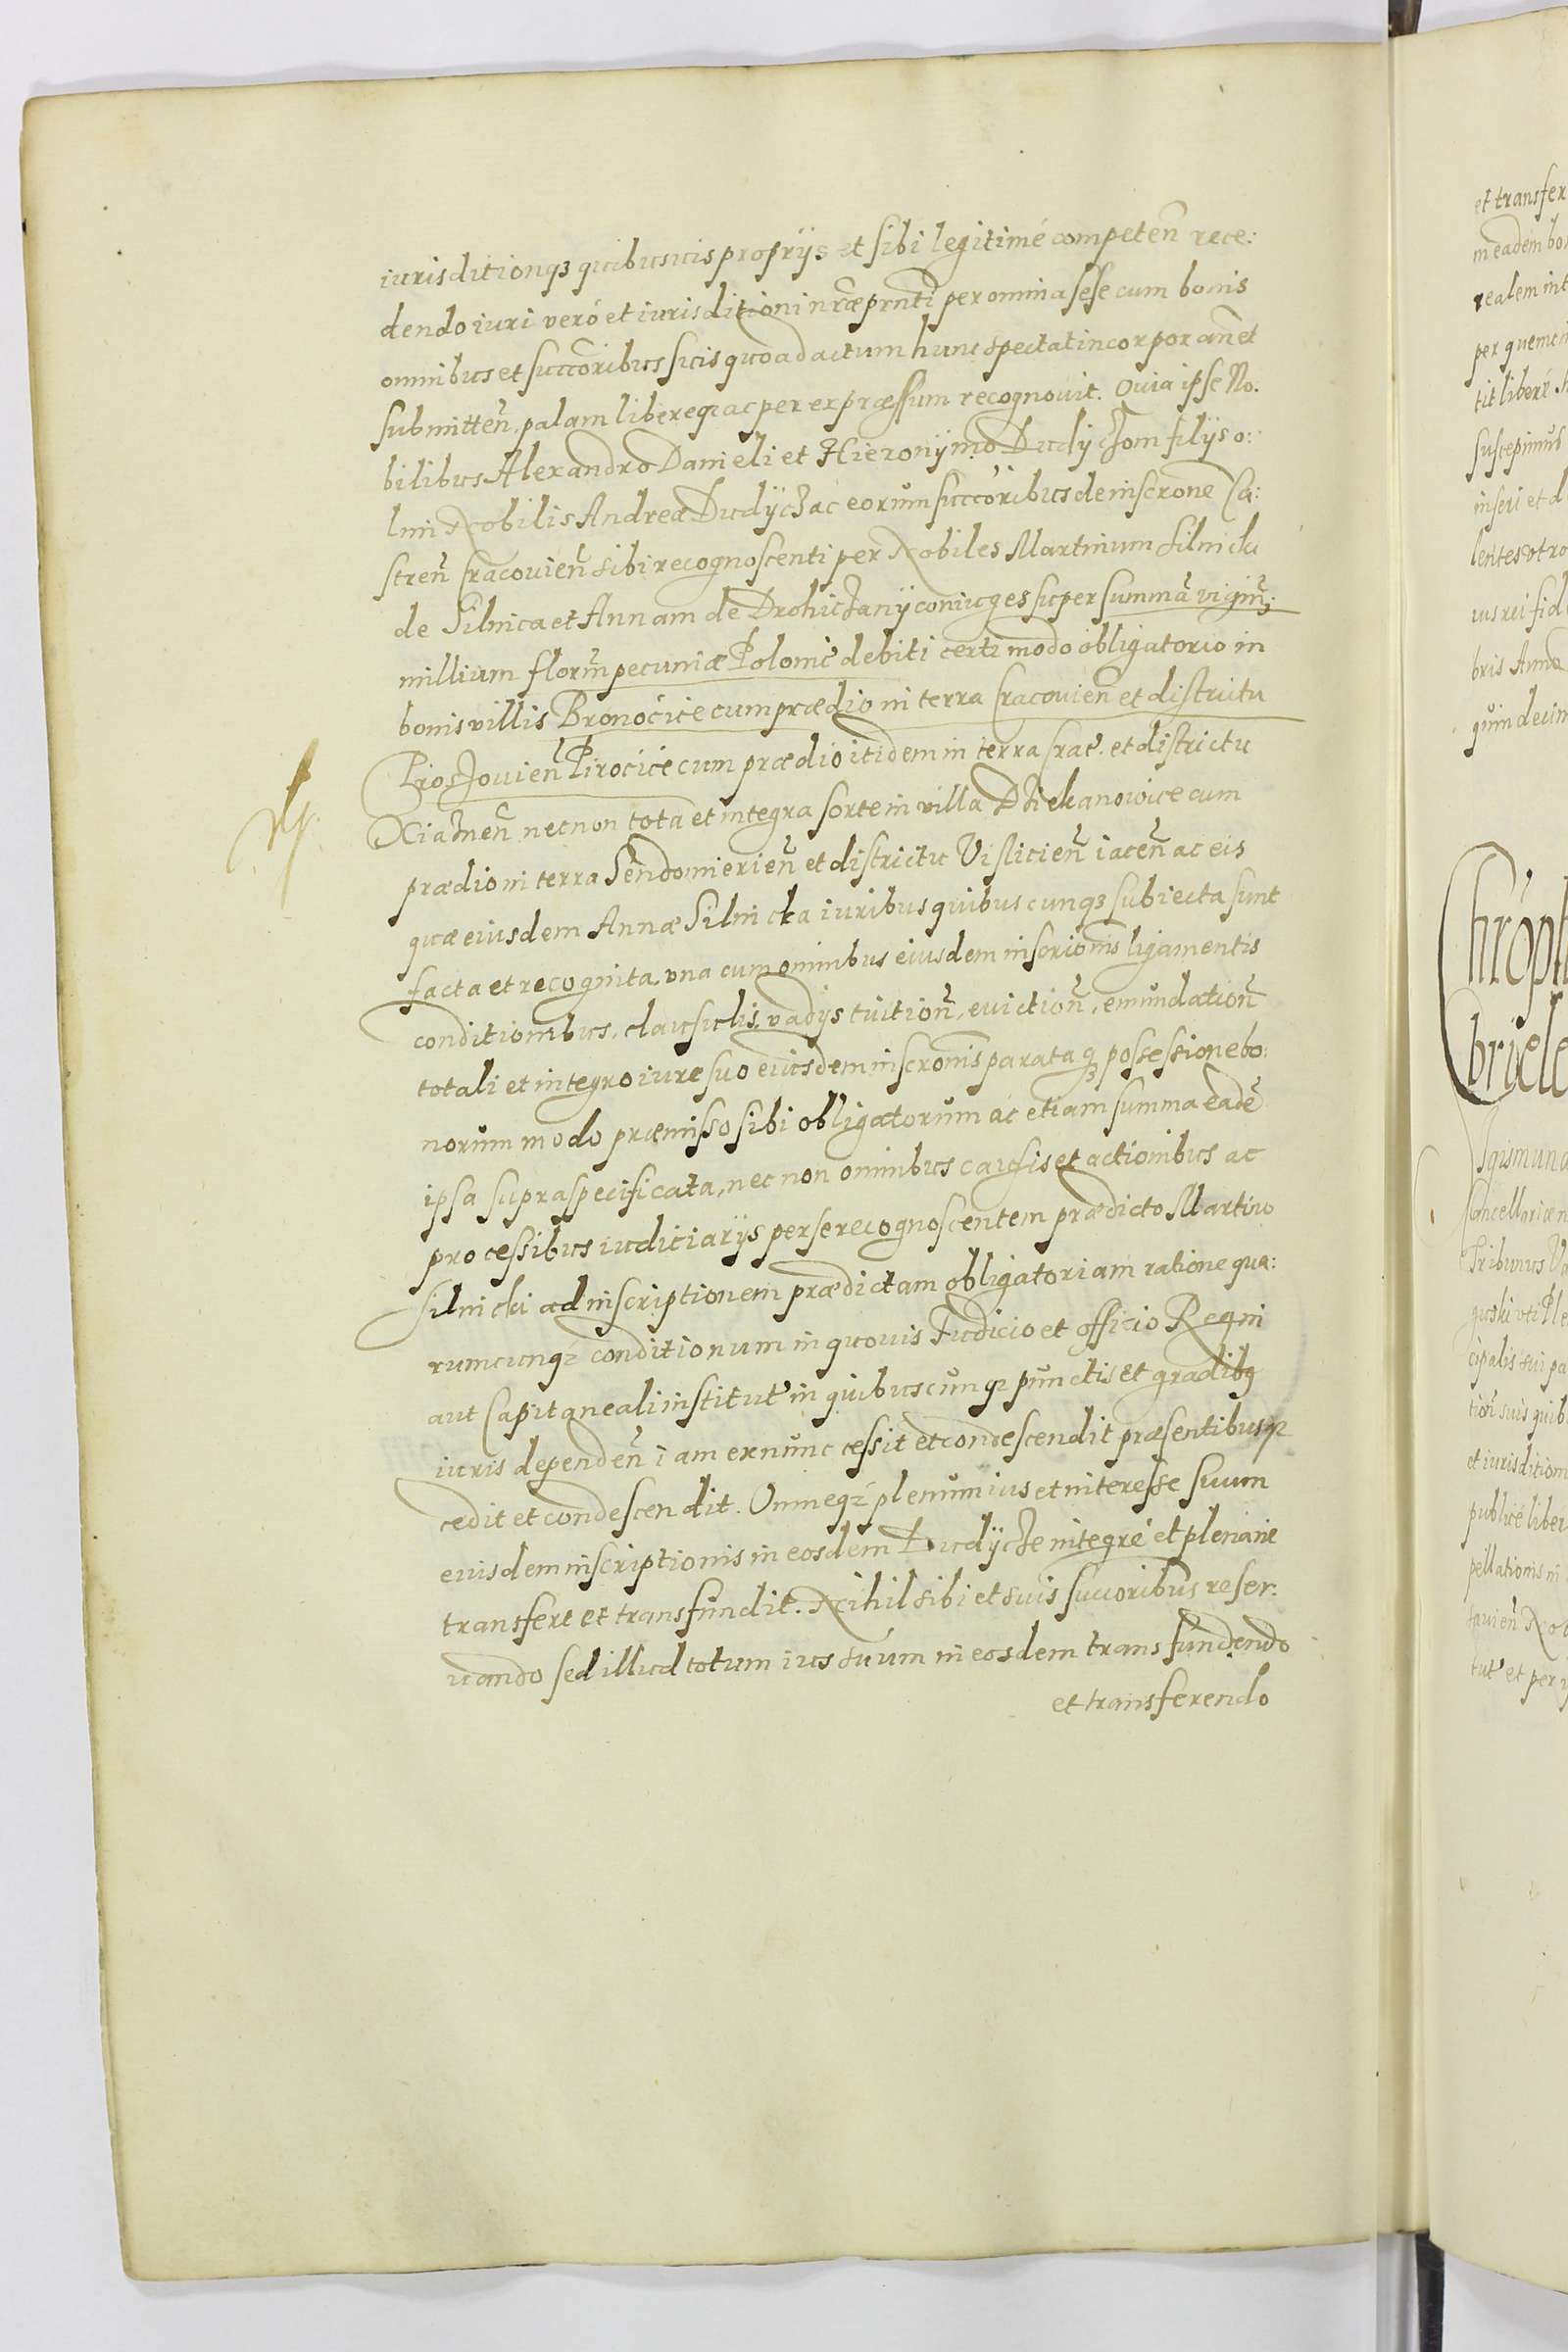 iurisditionqȝ quibusuis proprijs et sibi legitimé competen̄ rece:
dendo iuri veró et iurisditioni nr̄æ prnti per omnia sese cum bonis
omnibus et succoribus suis quoad actum hunc spectat incorporan̄ et
submitten̄, palam libereqȝ ac per expræssum recognouit. Quia ipse No.
bilibus Alexandro Danieli et Hieronÿmo Dudÿczom filijs o:
lim Nobilis Andreæ Dudÿcz ac eorum succoribus de inscrone Ca:
stren̄ Cracouien̄ sibi recognoscenti per Nobiles Martinum Silnicki
de Silnica et Annam de Drohiczanÿ coniuges super summā vigin̄
millium floren̄ pecuniæ Polonic̄ debiti certi modo obligatorio in
bonis villis Bronocice cum prædio in terra Cracouien̄ et districtu
Proszouien̄ Pirocice cum prædio itidem in terra Crac̄. et districtu
Xiaznen̄ necnon tota et integra sorte in villa Dziekanowice cum
prædio in terra Sendomierien̄ et districtu Vislicien̄ iacen̄ ac eis
quæ eiusdem Annæ Silnicka iuribus quibuscunqȝ subiecta sunt
facta et recognita, vna cum omnibus eiusdem inscrionis ligamentis
conditionibus, clausulis, vadijs tuition̄, euiction̄, emundation̄
totali et integro iure suo eiusdem inscronis parataqȝ possessione bo:
norum modo præmisso sibi obligatorum ac etiam summa eadē
ipsa supraspecificata, nec non omnibus causis et actionibus ac
processibus iudiciarijs per se recognoscentem prædicto Martino
Silnicki ad inscriptionem prædictam obligatoriam ratione qua:
rumcunqȝ conditionum in quouis Iudicio et officio Regni
aut Capitaneali institut̄ in quibuscunqȝ punctis et gradibȝ
iuris dependen̄ iam exnunc cessit et condescendit præsentibusqȝ
cedit et condescendit. Omneqȝ plenum ius et interesse suum
eiusdem inscriptionis in eosdem Dudÿcze integré et plenarie
transfert et transfundit. Nihil sibi et suis succoribus reser:
uando sed illud totum ius suum in eosdem transfundendo
et transferendo
et transfer
in eadem bo
realem int
per quem
tit liberé
suscepimus
inseri et d
lentes vtro
ius rei fid
bris Anno
quindecim
Chroph
briele
Sigismund
Cancellariæ
Tribunus
guski vti Ple
cipalis sui pa
tion̄ suis quib
et iurisdition
publicé liber
pellationis in
tut̄ et per